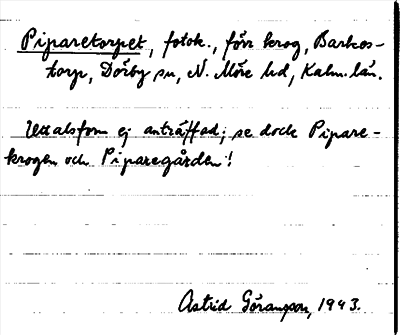 Piparetorpet, fotok., förr krog, Barkes-
torp, Dörby sn, N. Möre hd, Kalm. län.
Uttalsform ej anträffad; se dock Pipare-
krogen och Piparegården!
Astrid Göransson, 1943.